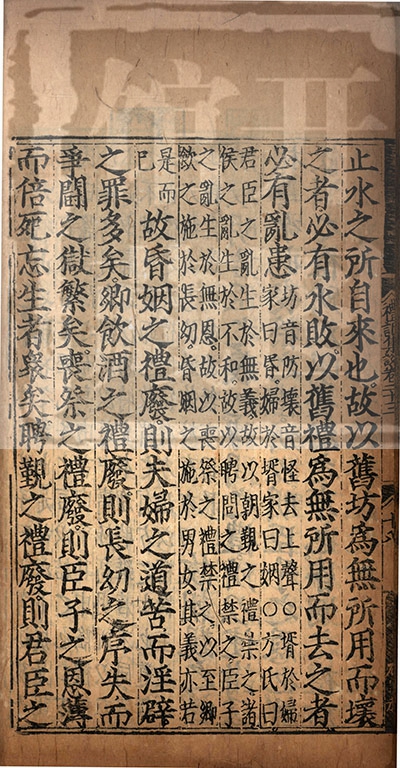 止水之所自來也故以舊坊為無所用而壞
之者必有水敗以舊禮為無所用而去之者
必有亂患
坊音防壞音怪去上聲○壻於婦
家曰昏婦於壻家曰姻○方氏曰
君臣之亂生於無義故以朝覲之禮禁之諸
侯之亂生於不和故以聘問之禮禁之臣子
之亂生於無恩故以喪祭之禮禁之以至鄉
飲之施於長幼昏姻之施於男女其義亦若
是而
已
故昏姻之禮廢則夫婦之道苦而淫辟
之罪多矣鄉飲酒之禮廢則長幼之序失而
爭鬭之獄繁矣喪祭之禮廢則臣子之恩薄
而倍死忘生者衆矣聘覲之禮廢則君臣之